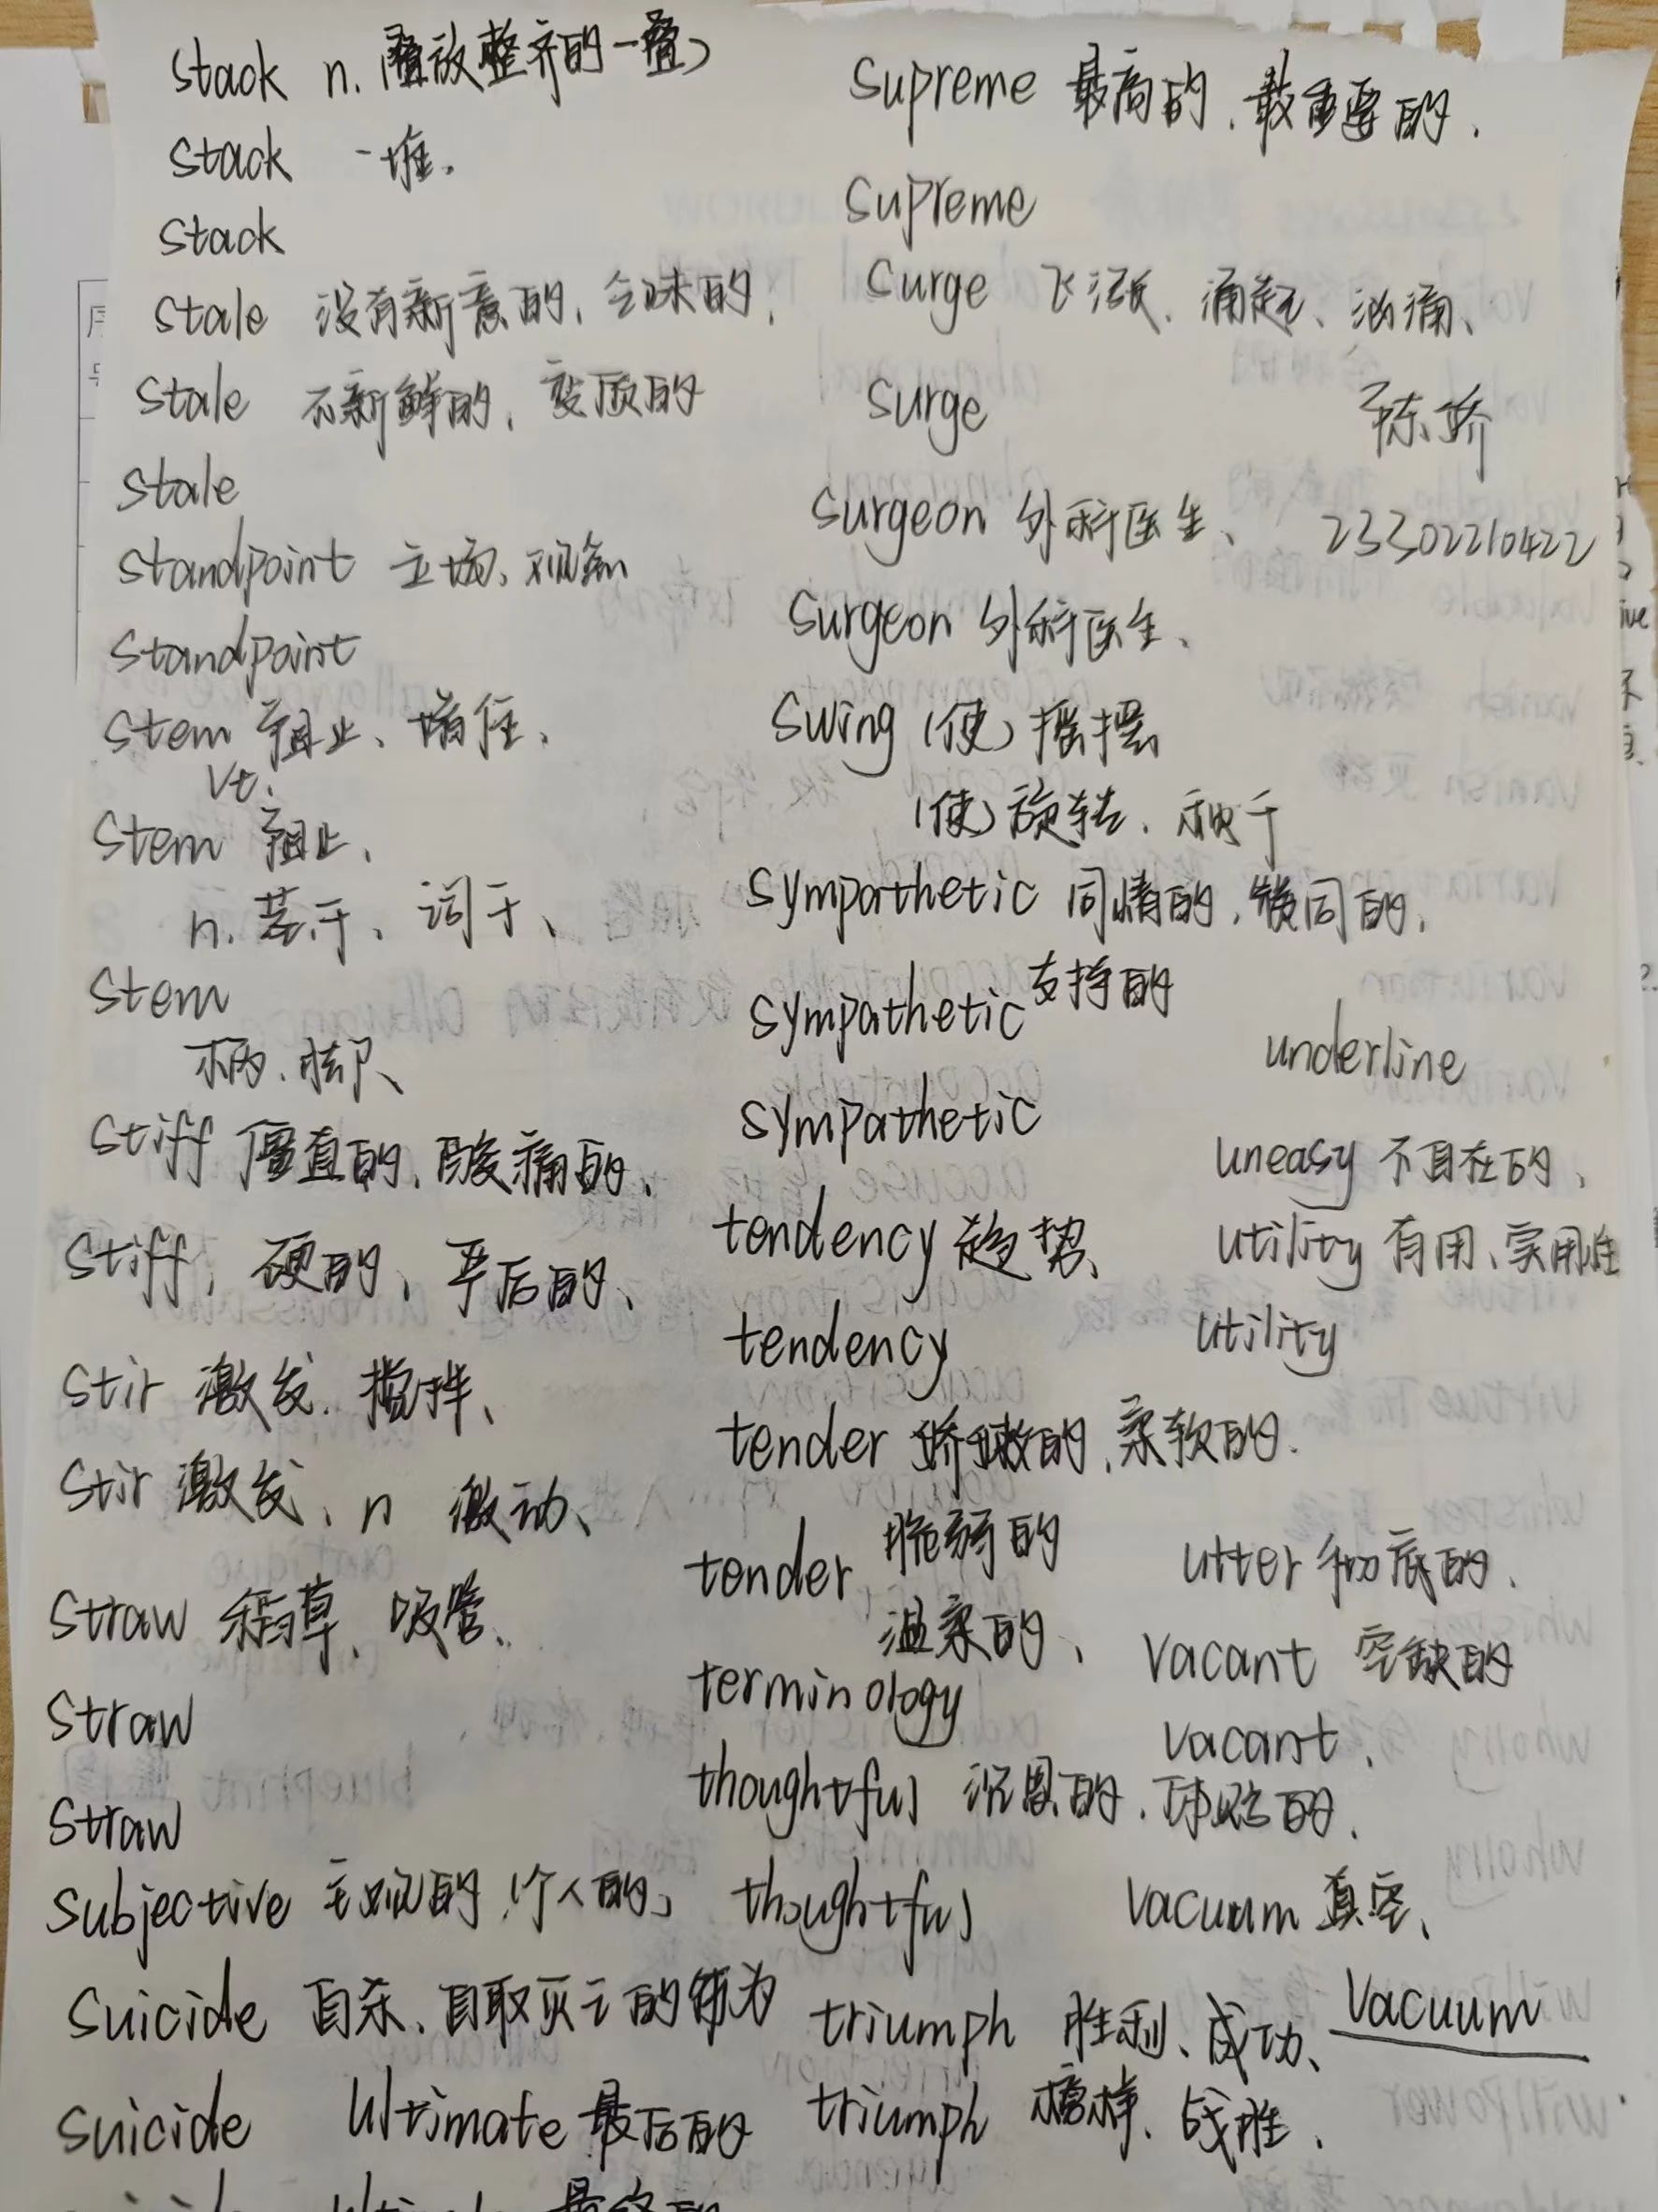 stack n.(叠放整齐的一叠)
stack 一堆.
stack
stale 没有新意的,乏味的,
stale 不新鲜的,变质的
stale
standpoint 立场、观点
standpoint
stem 阻止、堵住、
vt.
stem 阻止、
n. 茎干、词干、
stem
柄、脚、
stiff 僵直的、酸痛的、
stiff, 硬的、严厉的、
stir 激发、搅拌、
stir 激发、n 激动、
straw 稻草、吸管、
straw
straw
subjective 主观的,个人的、
suicide 自杀、自取灭亡的行为
suicide ultimate 最后的
supreme 最高的、最重要的、
supreme
surge 飞涨、涌起、汹涌、
surge 陈娇
surgeon 外科医生、 23302210422
surgeon 外科医生、
swing (使)摇摆
(使)旋转、秋千
sympathetic 同情的,赞同的,
支持的
sympathetic
underline
sympathetic
uneasy 不自在的、
tendency 趋势、 utility 有用、实用性
tendency utility
tender 娇嫩的、柔软的.
脆弱的
tender utter 彻底的、
温柔的、 vacant 空缺的
terminology
vacant、
thoughtful 沉思的、体贴的、
thoughtful vacuum 真空、
triumph 胜利、成功、 vacuum
triumph 榜样、战胜、